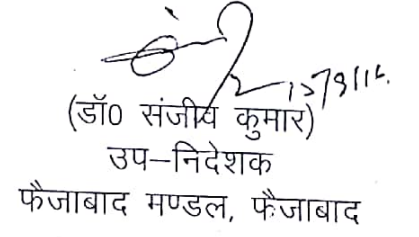 (डॉ0 संजीव कुमार)
उप–निदेशक
फैजाबाद मण्डल, फैजाबाद